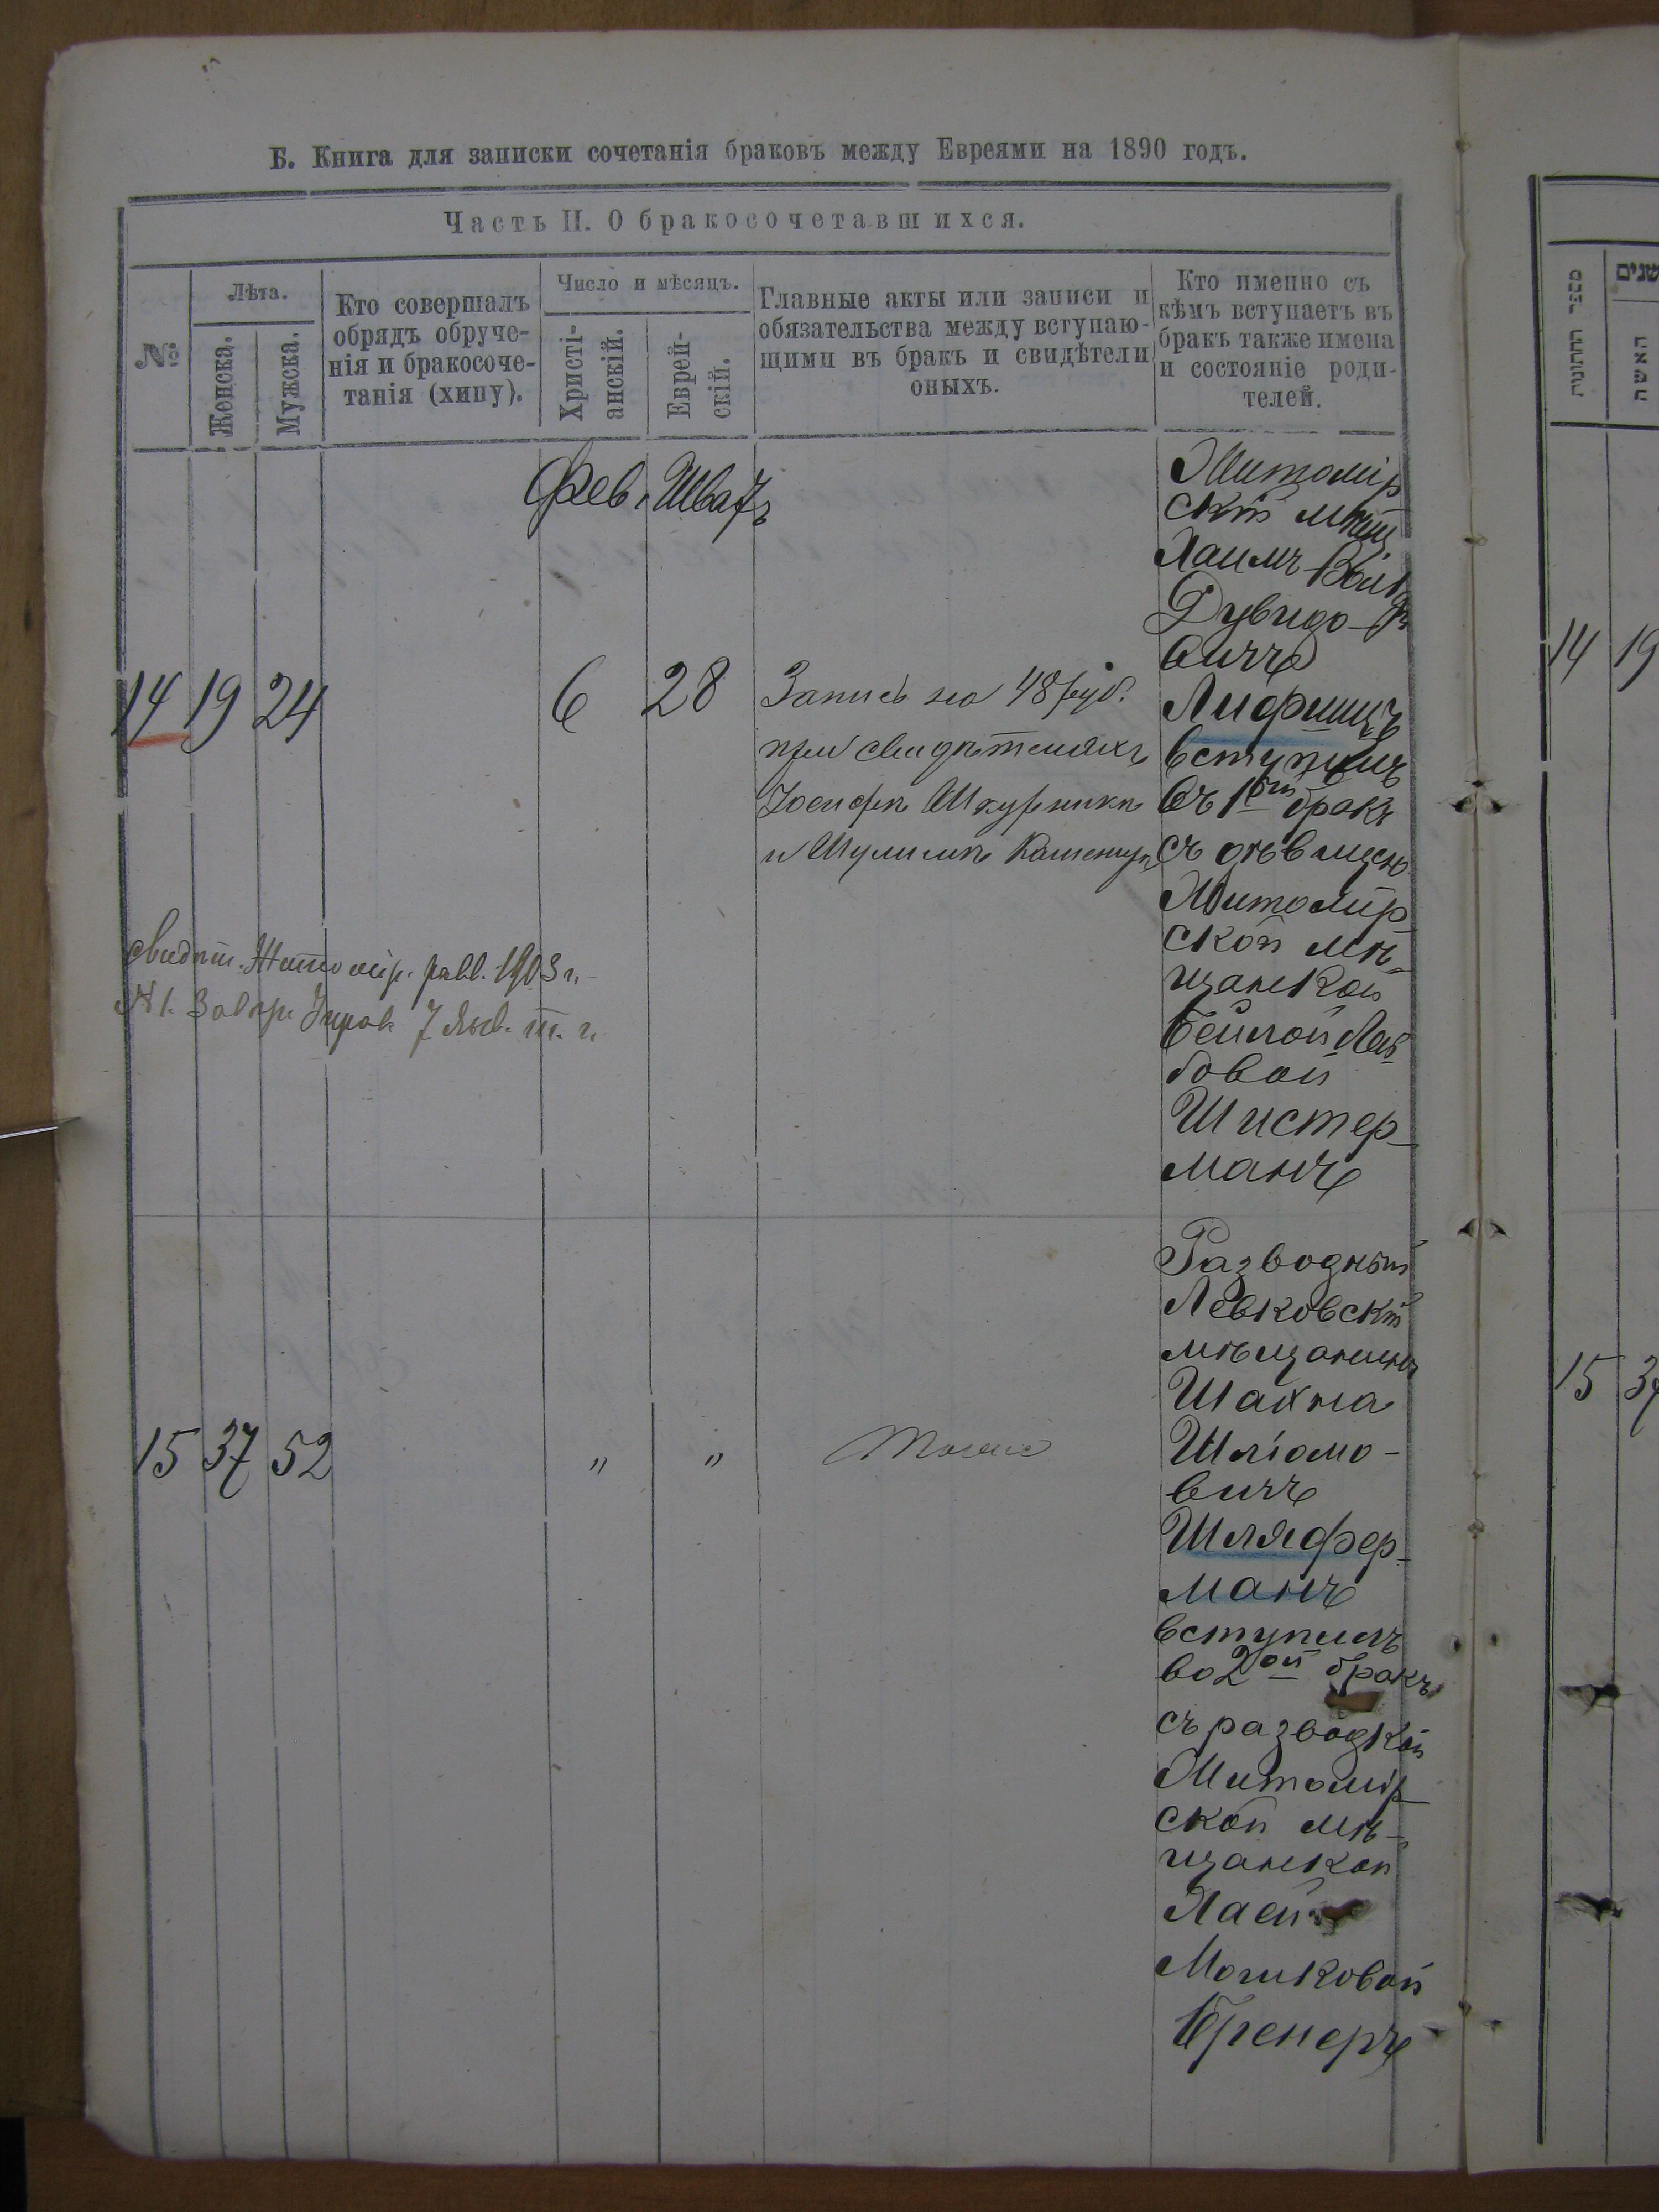 Б. Книга для записки сочетанія браковъ между Евреями на 1890 годъ.
Часть II. О бракосочетавшихся.
№
Лѣта.
Женска.
Мужска.
Кто совершалъ
обрядъ обруче-
нія и бракосоче-
танія (хипу).
Число и мѣсяцъ.
Христі-
анскій.
Еврей-
скій.
Главные акты или записи и
обязательства между вступаю-
щими въ бракъ и свидѣтели
оныхъ.
Кто именно съ
кѣмъ вступаетъ въ
бракъ также имена
и состояніе роди-
телей.
Фев. Шватъ
14 19 24
6 28
Запись на 48 руб.
при свидѣтеляхъ
Іосифѣ Шкурникѣ
и Шулимѣ
Житомір
скій мѣщ
Хаимъ
Дувидо-
вичъ
Лифшицъ
вступилъ
въ 1ый бракъ
съ дѣвицею
Житомір
ской мѣ-
щанкой
Бейлой Лей
бовой
Шистер-
манъ
свидѣт. Житомір. равв. 1903 г.
№ 1. Завѣр. Управ. 7 Янв. т. г.
15 37 52
" "
Тоже
Разводный
Левковскій
мѣщанинъ
Шахна
Шліомо-
вичъ
Шляфер-
манъ
вступилъ
во 2ой бракъ
съ разводкой
Житомір-
ской мѣ-
щанкой
Мошковой
Бренеръ
מספר החתונות
שנים
האשה
14 19
15 37